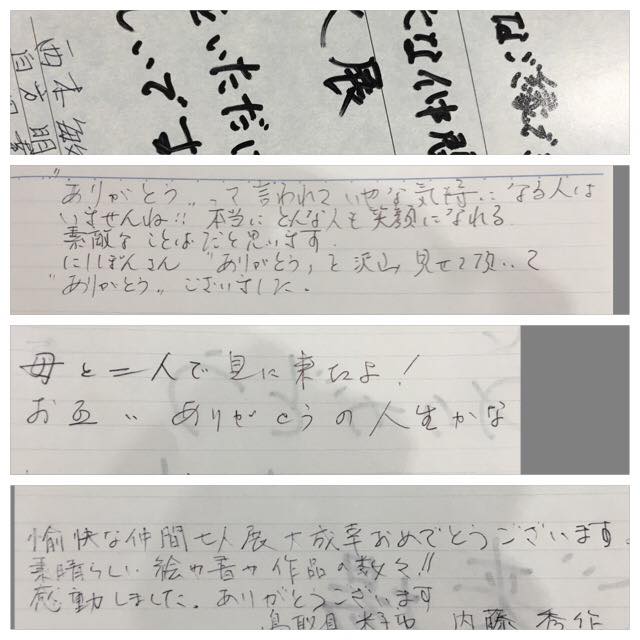 なご縁で
な仲間
展
いただい
いです
西本敏明
"ありがとう"って言われていやな気持になる人は
いませんね!! 本当にどんな人も笑顔になれる
素敵なことばだと思います.
にしぽんさん "ありがとう"を沢山見せて頂いて
"ありがとう"ございました.
母と二人で見に来たよ!
お互"ありがとうの人生かな
愉快な仲間七人展大放幸おめでとうございます.
素晴らしい絵や書や作品の数々!!
感動しました.ありがとうございます
鳥取県 米子市 内藤秀作